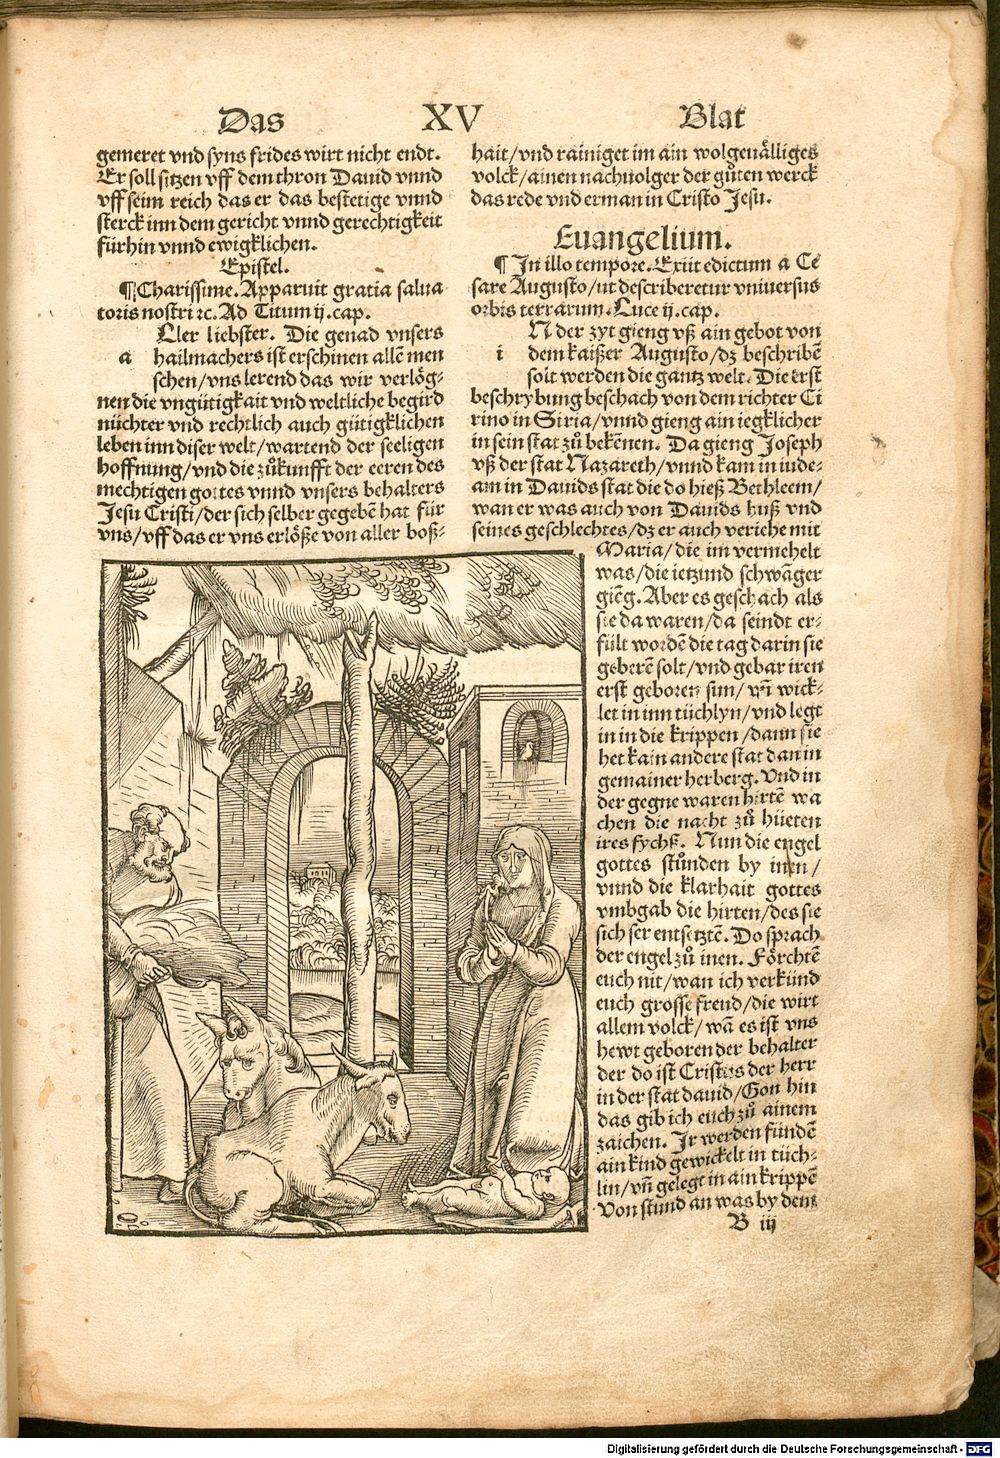 Das XV Blat
gemeret vnd syns frides wirt nicht endt.
Er soll sitzen vff dem thron Dauid vnnd
vff seim reich das er das bestetige vnnd
sterck inn dem gericht vnnd gerechtigkeit
fürhin vnnd ewigklichen.
Epistel.
¶ Charissime. Apparuit gratia salua
toris nostri ꝛc. Ad Titum ij. cap.
Ller liebster. Die genad vnsers
a hailmachers ist erschinen allē men
schen/vns lerend das wir verlög⸗
nen die vngütigkait vnd weltliche begird
nüchter vnd rechtlich auch gütigklichen
leben inn diser welt/wartend der seeligen
hoffnung/vnd die zůkunfft der eeren des
mechtigen gottes vnnd vnsers behalters
Jesu Cristi/der sich selber gegebē hat für
vns/vff das er vns erlöße von aller boß⸗
hait/vnd rainiget im ain wolgeuälliges
volck/ainen nachuolger der gůten werck
das rede vnd erman in Cristo Jesu.
Euangelium.
¶ In illo tempore. Exiit edictum a Ce
sare Augusto/ut describeretur vniuersus
orbis terrarum. Luce ij. cap.
N der zyt gieng vß ain gebot von
i dem kaißer Augusto/dz beschribē
solt werden die gantz welt. Die erst
beschrybung beschach von dem richter Ci
rino in Siria/vnnd gieng ain iegklicher
in sein stat zů bekēnen. Da gieng Joseph
vß der stat Nazareth/vnnd kam in iude⸗
am in Dauids stat die do hieß Bethleem/
wan er was auch von Dauids huß vnd
seines geschlechtes/dz er auch veriehe mit
Maria/die im vermehelt
was/die ietzund schwāger
giēg. Aber es geschach als
sie da waren/da seindt er⸗
fült wordē die tag darin sie
geberē solt/vnd gebar iren
erst geboren sun/vn̄ wick⸗
let in inn tüchlyn/vnd legt
in in die krippen/dann sie
het kain andere stat dan in
gemainer herberg. Vnd in
der gegne waren hirtē wa
chen die nacht zů hüeten
ires fychs. Nun die engel
gottes stůnden by inen/
vnnd die klarhait gottes
vmbgab die hirten/des sie
sich ser entsetztē. Do sprach
der engel zů inen. Förchtē
euch nit/wan ich verkünd
euch grosse freud/die wirt
allem volck/wā es ist vns
hewt geboren der behalter
der do ist Cristus der herr
in der stat dauid/Gon hin
das gib ich euch zů ainem
zaichen. Ir werden fundē
ain kind gewickelt in tüch⸗
lin/vn̄ gelegt in ain krippē
Von stund an was by dem
B iij
Digitalisierung gefördert durch die Deutsche Forschungsgemeinschaft - DFG